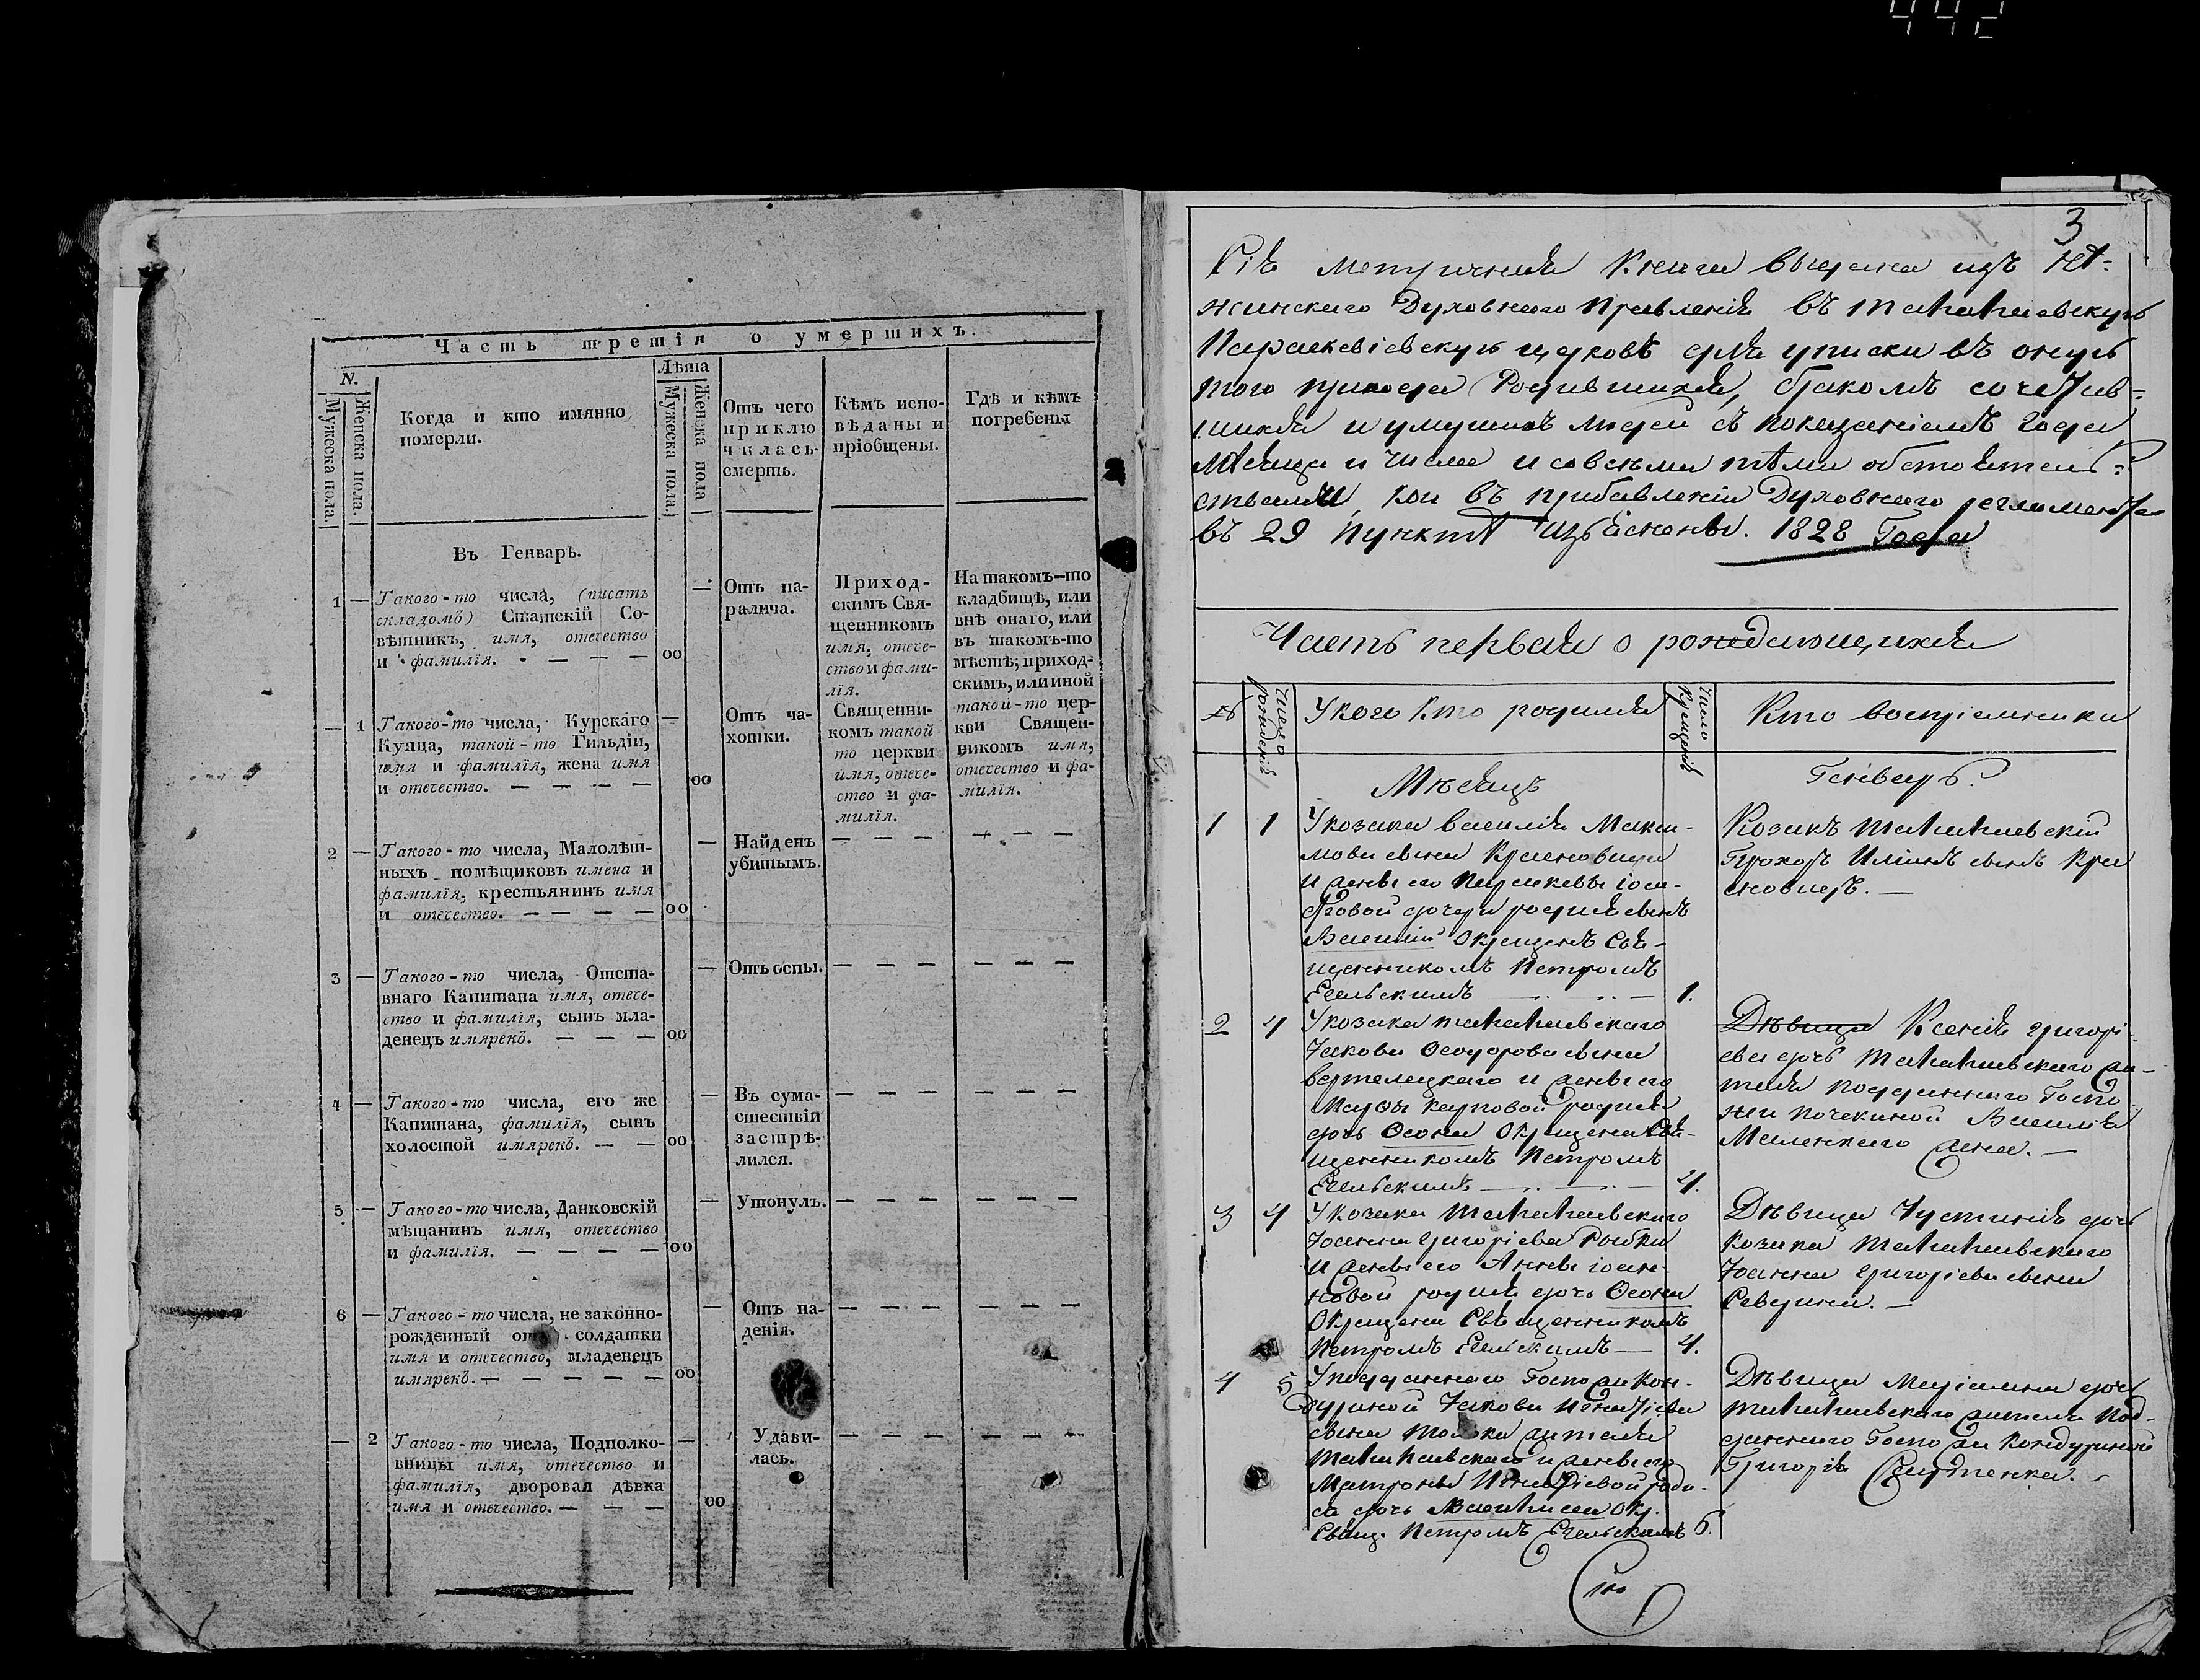 442
Часть третія о умершихъ.
N.
Мужеска пола.
Женска пола.
Когда и кто имянно
померли.
Лѣта
Мужеска пола.
Женска пола
Отъ чего
приклю
чилась
смерть.
Кѣмъ испо-
вѣданы и
пріобщены.
Гдѣ и кѣмъ
погребены
Въ Генварѣ.
1 — Такого-то числа, (писать
складомъ) Статскій Со-
вѣтникъ, имя, отечество
и фамилія. — — — 00
— Отъ па-
ралича.
Приход-
скимъ Свя-
щенникомъ
имя, отече-
ство и фами-
лія.
На такомъ-то
кладбищѣ, или
внѣ онаго, или
въ такомъ-то
мѣстѣ; приход-
скимъ, или иной
такой-то цер-
кви Священ-
никомъ имя,
отечество и фа-
милія.
— 1 Такого-то числа, Курскаго
Купца, такой-то Гильдіи,
имя и фамилія, жена имя
и отечество. — — — — 00
— Отъ ча-
хотки.
Священни-
комъ такой
то церкви
имя, отече-
ство и фа-
милія.
2 — Такого-то числа, Малолѣт-
ныхъ помѣщиковъ имена и
фамилія, крестьянинъ имя
и отечество. — — — — 00
— Найденъ
убитымъ.
— — — — — —
3 — Такого-то числа, Отста-
внаго Капитана имя, отече-
ство и фамилія, сынъ мла-
денецъ имярекъ. — — — 00
— Отъ оспы. — — — — — —
4 — Такого-то числа, его же
Капитана, фамилія, сынъ
холостой имярекъ. — — 00
— Въ сума-
сшествіи
застрѣ-
лился.
— — — — — —
5 — Такого-то числа, Данковскій
мѣщанинъ имя, отечество
и фамилія. — — — — 00
— Утонулъ. — — — — — —
6 — Такого-то числа, не законно-
рожденный отъ солдатки
имя и отечество, младенецъ
имярекъ. — — — — — 00
— Отъ па-
денія.
— — — — — —
— 2 Такого-то числа, Подполко-
вницы имя, отечество и
фамилія, дворовая дѣвка
имя и отечество. — — — 00
— Удави-
лась.
— — — — — —
3
Сія метричная Книга выдана изъ Нѣ-
жинскаго Духовнаго Правленія въ
Параскевіевскую церковь для уписки въ оную
того прихода Родившихся, бракомъ сочетав-
шихся и умершихъ людей съ показаніемъ года
мѣсяца и числа и совсѣми тѣми обстоятель-
ствами, кои въ прибавленіи Духовнаго регламента
въ 29 пунктѣ изъяснены. 1828 Года
Часть первая о рождающихся
№
Число рожденія
У кого Кто родился
Число Крещенія
Кто воспріемники
Мѣсяцъ Генварь.
1 1 У козака василія Макси-
мова сына Красновида
и жены его Параскевы
дочери родился сынъ
Василій Окрещенъ Свя-
щенникомъ Петромъ
1.
Козакъ
Прохоръ сынъ Кра
2 4 У козака
Іакова Ѳеодорова сына
вертелецкаго и жены его
Марѳы карповой родилась
дочь Ѳеона Окрещена Свя-
щенникомъ Петромъ
4.
Дѣвица Ксенія григорі-
ева дочь жи-
теля подданнаго Госпо
жи Почекиной Василія
жена. —
3 4 У козака
Іоанна григоріева Рыбки
и жены его Анны іоан-
новой родилась дочь Ѳеона
Окрещена Священникомъ
Петромъ 4.
Дѣвица Іустинія дочь
козака
Іоанна григоріева сына
Северина. —
4 5 У подданнаго Госпожи Кон-
дуриной Іакова Игнатіева
сына жителя
и жены его
Матроны Игнатіевой роди-
ся дочь Окр.
Свящ. Петромъ 6.
Дѣвица Маріамна дочь
жителя под-
даннаго Госпожи Кондуриной
Григорія